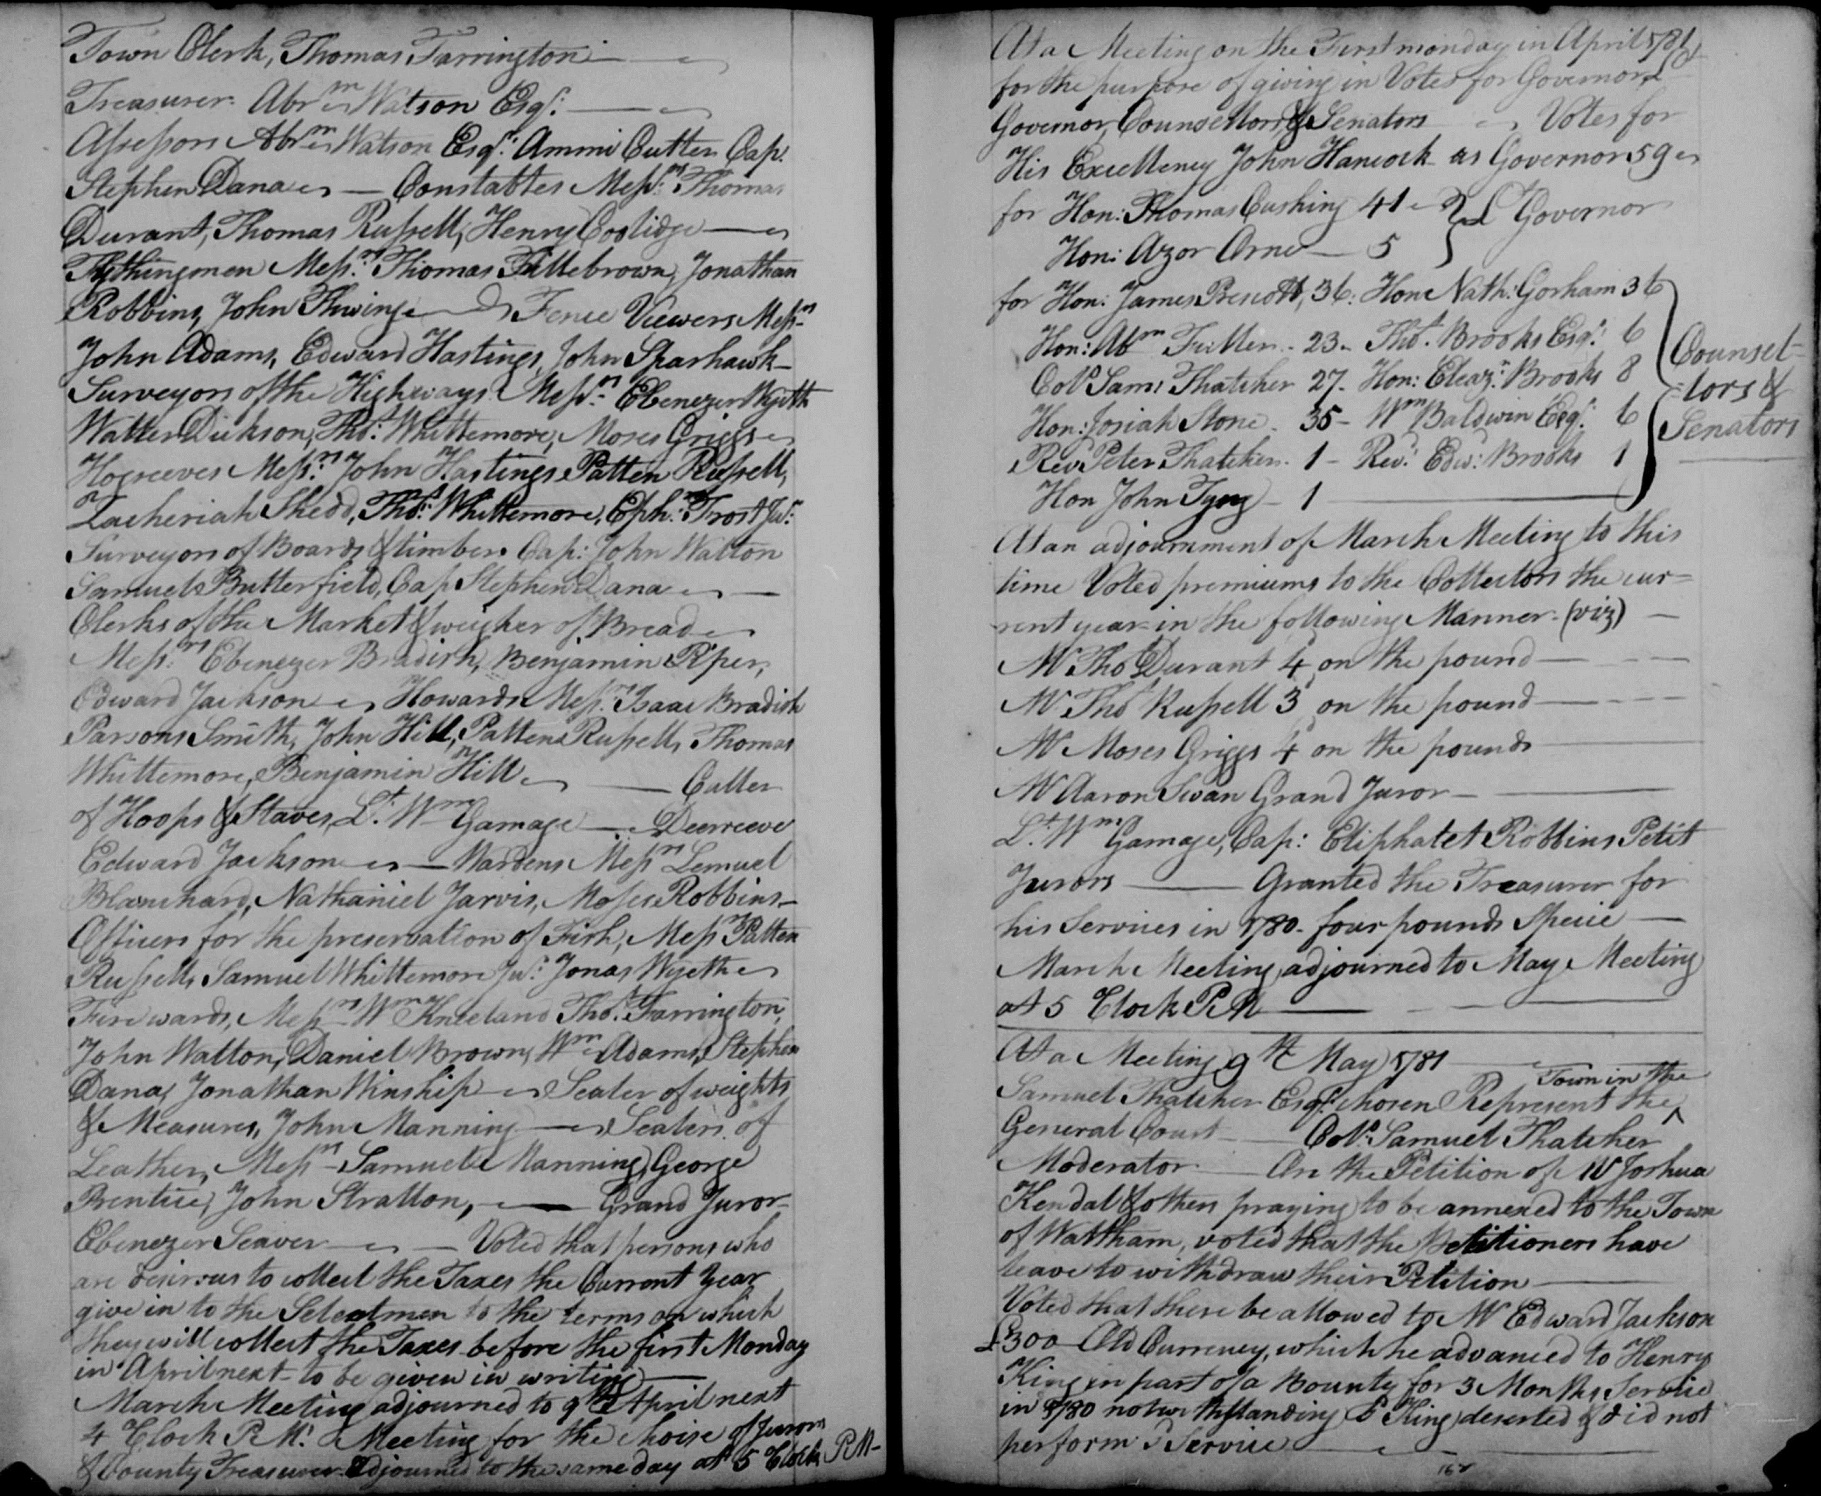 Town Clerk, Thomas Farrington
Treasurer Abrm Watson Esqr:
Assessors Abrm Watson Esqr: Ammi Cutter Cap.
Stephen Dana — Constables Messrs Thomas
Durant, Thomas Russell, Henry Coolidge —
Tythingmen Messrs Thomas Fillebrown, Jonathan
Robbins, John Thwing — Fence Viewers Messrs
John Adams, Edward Hastings, John Sparhawk —
Surveyors of the Highways Messrs Ebenezer Wyeth
Walter Dickson, Thos: Whittemore, Moses Griggs
Hogreeves Messrs John Hastings Patten Russell,
Zacheriah Shedd, Thos: Whittemore, Ephm: Frost Jur:
Surveyors of Boards & timber Cap: John Walton
Samuel Butterfield, Cap Stephen Dana —
Clerks of the Market & weigher of Bread
Messrs Ebenezer Bradish, Benjamin Piper,
Edward Jackson — Howards Messrs Isaac Bradish
Parsons Smith, John Hill, Patten Russell, Thomas
Whittemore, Benjamin Hill — Culler
of Hoops & Staves, Lt. Wm Gamage — Deerreeve
Edward Jackson — Wardens Messrs Lemuel
Blanchard, Nathaniel Jarvis, Moses Robbins —
Officers for the preservation of Fish, Messrs Patten
Russell, Samuel Whittemore Jur: Jonas Wyeth
Firewards, Messrs Wm Kneeland Thos. Farrington,
John Walton, Daniel Brown, Wm Adams, Stephen
Dana, Jonathan Winship — Sealer of weights
& Measures, John Manning — Sealers of
Leather, Messrs Samuel Manning, George
Prentice, John Stratton, — Grand Juror
Ebenezer Seaver — Voted that persons who
are desirous to collect the Taxes the Current Year
give in to the Selectmen the terms on which
they will collect the Taxes before the first Monday
in April next to be given in writing —
March Meeting adjourned to 9th April next
4 Clock P.M. Meeting for the choise of Jurors
& County Treasurer adjourned to the same day at 5 Clock P.M —
At a Meeting on the First monday in April 1781
for the purpose of giving in Votes for Governor, Lt
Governor, Counsellors & Senators Votes for
His Excellency John Hancock as Governor 59
for Hon: Thomas Cushing 41 } Lt Governor
Hon: Azor Orne — 5
for Hon: James Prescott, 36: Hon: Nath: Gorham 36
Hon: Abm Fuller - 23 - Thos. Brooks Esqr: 6
Coll Saml Thatcher 27 - Hon: Eleazr: Brooks 8
Hon: Josiah Stone - 35 - Wm Baldwin Esqr. 6
Revd Peter Thatcher - 1 - Revd: Edwd: Brooks 1
Hon John Tyng - 1
} Counsel-
-lors &
Senators
At an adjournment of March Meeting to this
time Voted premiums to the Collectors the cur=
rent year in the following Manner (viz) —
Mr Thos Durant 4d on the pound —
Mr Thos Russell 3d on the pound —
Mr Moses Griggs 4d on the pound
Mr Aaron Swan Grand Juror —
Lt. Wm Gamage, Cap: Eliphalet Robbins Petit
Jurors — Granted the Treasurer for
his Services in 1780 four pounds Specie —
March Meeting adjourned to May Meeting
at 5 Clock P.M —
At a Meeting 9th May 1781
Town in the
Samuel Thatcher Esqr. chosen Represent the ^
General Court — Coll Samuel Thatcher
Moderator — On the Petition of Mr Joshua
Kendal & others praying to be annexed to the Town
of Waltham, voted that the Petitioners have
leave to withdraw their Petition —
Voted that there be allowed to Mr Edward Jackson
£300 Old Currency, which he advanced to Henry
King in part of a Bounty for 3 Months Service
in 1780 notwithstanding sd King deserted & did not
perform sd Service